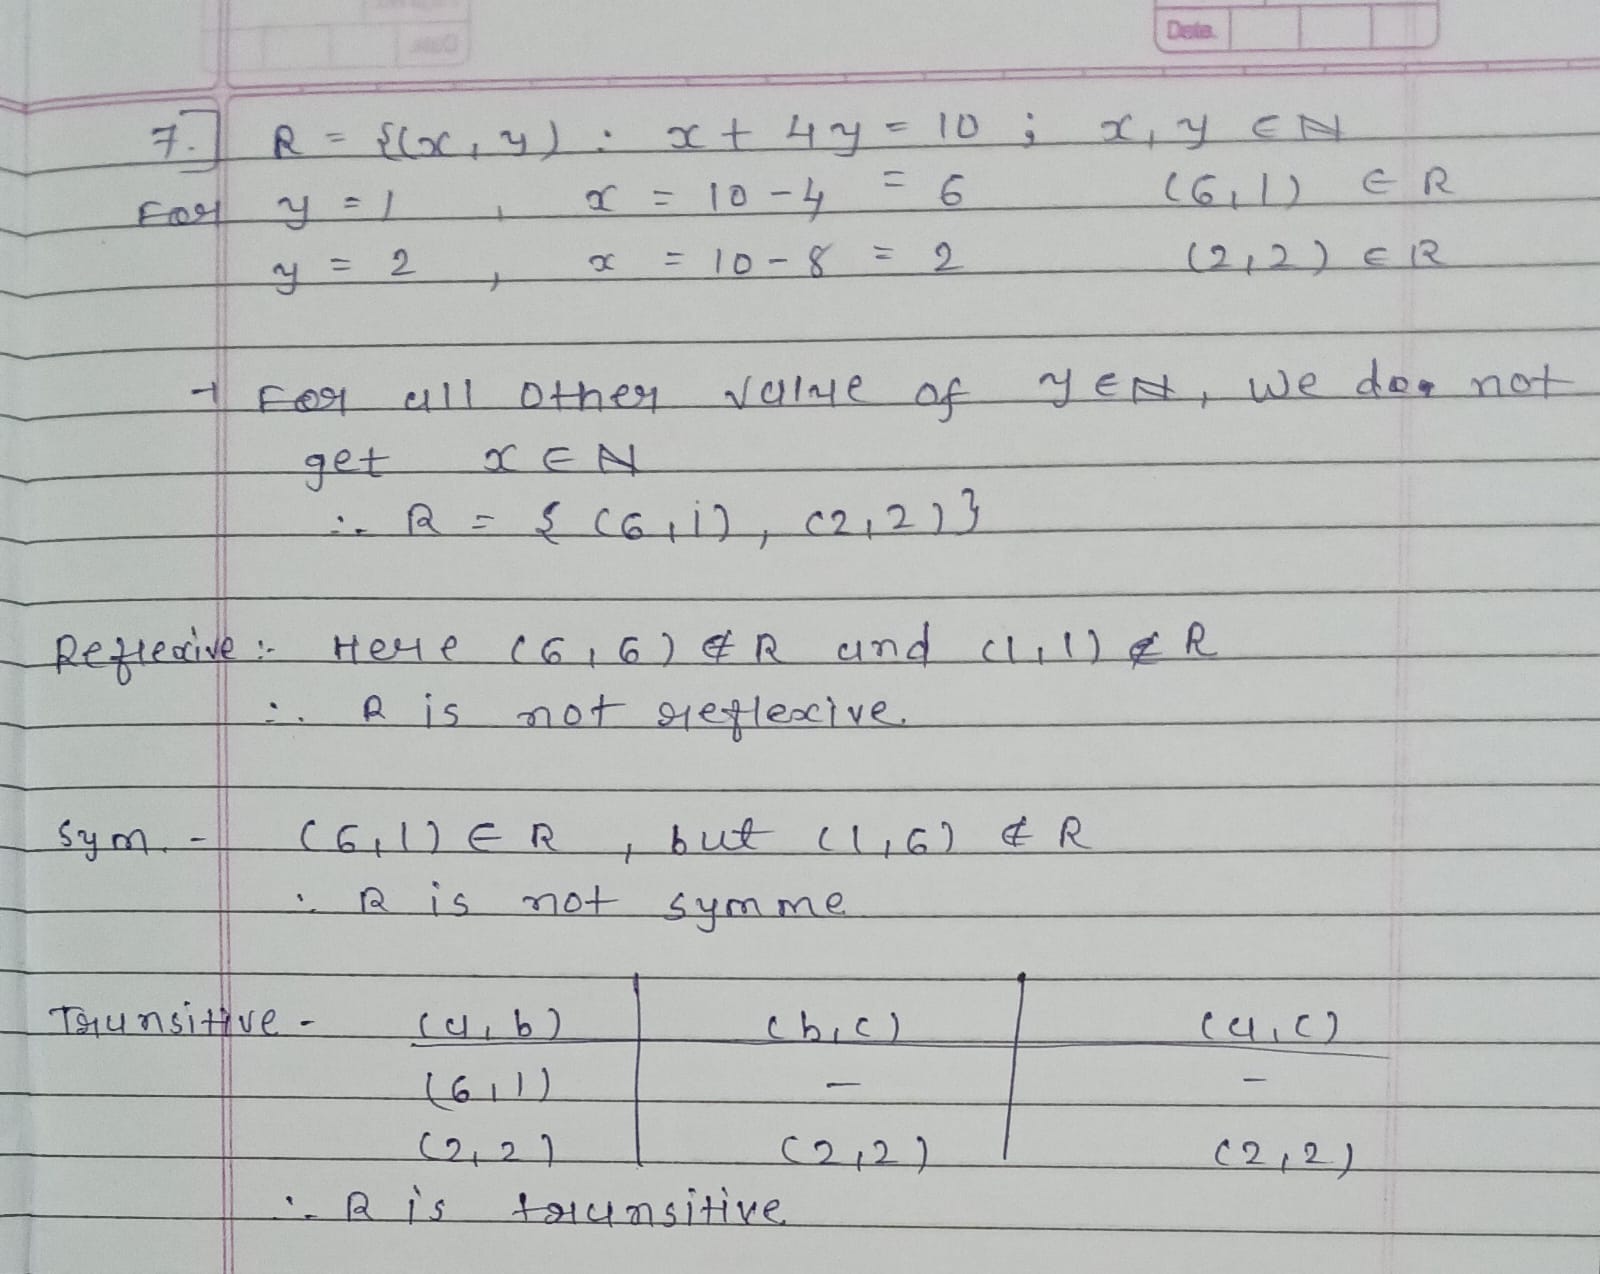 Date
7.] R = {(x, y) : x + 4y = 10 ; x, y ∈ N
For y = 1 , x = 10 - 4 = 6 (6,1) ∈ R
y = 2 , x = 10 - 8 = 2 (2,2) ∈ R
→ For all other value of y ∈ N, we do not
get x ∈ N
∴ R = {(6,1), (2,2)}
Reflexive :- Here (6,6) ∉ R and (1,1) ∉ R
∴ R is not reflexive.
Sym. - (6,1) ∈ R , but (1,6) ∉ R
∴ R is not symme
Transitive - (a,b) (b,c) (a,c)
(6,1) - -
(2,2) (2,2) (2,2)
∴ R is transitive